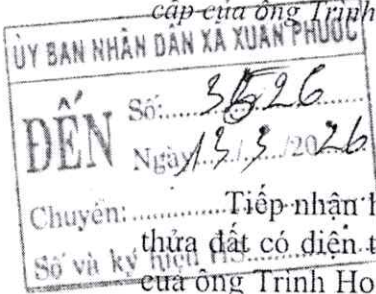 cấp của ông Trịnh
ỦY BAN NHÂN DÂN XÃ XUÂN PHƯỚC
ĐẾN
Số: 3526
Ngày 13/3/2026
Chuyển:
Tiếp nhận
thửa đất có diện t
Số và ký hiệu HS
của ông Trịnh Ho